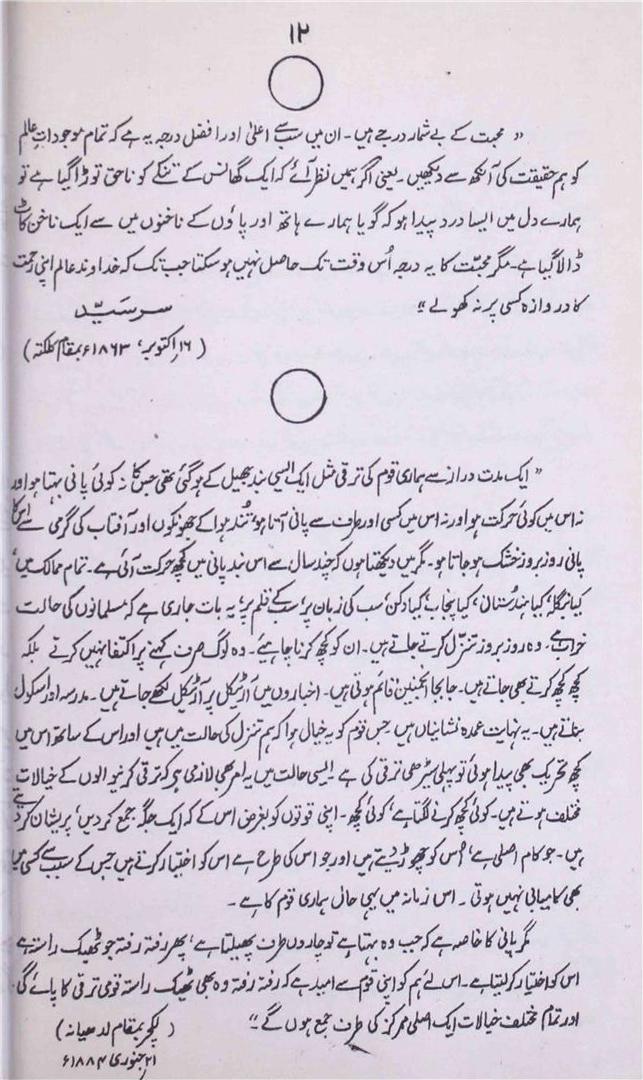 ۱۲
” محبت کے بے شمار درجے ہیں۔ ان میں سب سے اعلیٰ اور افضل درجہ یہ ہے کہ تمام موجوداتِ عالم
کو ہم حقیقت کی آنکھ سے دیکھیں۔ یعنی اگر ہمیں نظر آئے کہ ایک گھانس کے تنکے کو ناحق توڑا گیا ہے تو
ہمارے دل میں ایسا درد پیدا ہو کہ گویا ہمارے ہاتھ اور پاؤں کے ناخنوں میں سے ایک ناخن کاٹ
ڈالا گیا ہے۔ مگر محبّت کا یہ درجہ اُس وقت تک حاصل نہیں ہو سکتا جب تک کہ خداوند عالم اپنی رحمت
کا دروازہ کسی پر نہ کھولے “
سرسیّد
(۱۶ اکتوبر، ۱۸۶۳ء بمقام کلکتہ)
” ایک مدت دراز سے ہماری قوم کی ترقی مثل ایک ایسی بند جھیل کے ہو گئی تھی جس کا نہ کوئی پانی بہتا ہو اور
نہ اس میں کوئی حرکت ہو اور نہ اس میں کسی اور طرف سے پانی آتا ہو، تُند ہوا کے جھونکوں اور آفتاب کی گرمی سے اس کا
پانی روز بروز خشک ہو جاتا ہو۔ مگر میں دیکھتا ہوں کہ چند سال سے اس بند پانی میں کچھ حرکت آئی ہے۔ تمام ممالک میں،
کیا بنگلہ، کیا ہندوستان، کیا پنجاب، کیا دکن، سب کی زبان پر، سب کے قلم پر، یہ بات جاری ہے کہ مسلمانوں کی حالت
خراب ہے وہ روز بروز تنزّل کرتے جاتے ہیں۔ ان کو کچھ کرنا چاہیے۔ وہ لوگ صرف کہنے پر اکتفا نہیں کرتے بلکہ
کچھ کچھ کرتے بھی جاتے ہیں۔ جابجا انجمنیں قائم ہوتی ہیں۔ اخباروں میں آرٹیکل پر آرٹیکل لکھے جاتے ہیں۔ مدرسہ اور اسکول
بناتے ہیں۔ یہ نہایت عمدہ نشانیاں ہیں جس قوم کو یہ خیال ہوا کہ ہم تنزل کی حالت میں ہیں اور اس کے ساتھ اس میں
کچھ تحریک بھی پیدا ہوئی تو پہلی سیڑھی ترقی کی ہے ایسی حالت میں یہ امر بھی لازمی ہے کہ ترقی کرنیوالوں کے خیالات
مختلف ہوتے ہیں۔ کوئی کچھ کرنے لگتا ہے، کوئی کچھ۔ اپنی قوتوں کو بغرض اس کے کہ ایک جگہ جمع کر دیں، پریشان کر دیتے
ہیں۔ جو کام اصلی ہے، اُس کو چھوڑ دیتے ہیں اور جو اس کی طرح ہے اس کو اختیار کرتے ہیں جس کے سبب سے کسی میں
بھی کامیابی نہیں ہوتی۔ اس زمانہ میں یہی حال ہماری قوم کا ہے۔
مگر پانی کا خاصہ ہے کہ جب وہ بہتا ہے تو چاروں طرف پھیلتا ہے، پھر رفتہ رفتہ جو ٹھیک راستہ ہے
اس کو اختیار کر لیتا ہے۔ اس لئے ہم کو اپنی قوم سے امید ہے کہ رفتہ رفتہ وہ بھی ٹھیک راستہ قومی ترقی کا پائے گی۔
اور تمام مختلف خیالات ایک اصلی مرکز کی طرف جمع ہوں گے۔“
(لکچر بمقام لدھیانہ)
۲۱ جنوری ۱۸۸۴ء